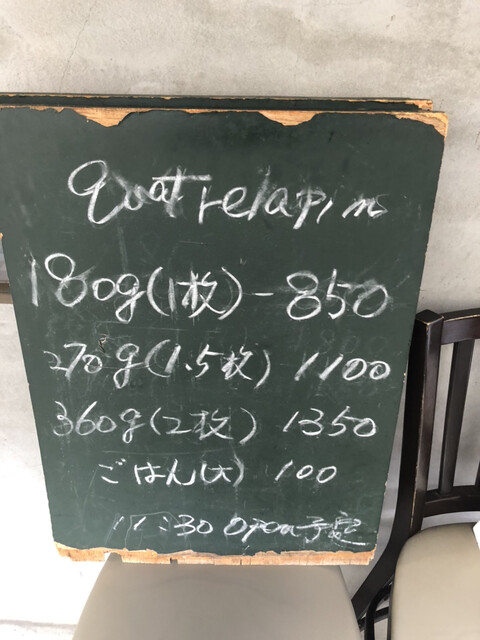 Quatrelapin
180g(1枚)-850
270g(1.5枚) 1100
360g(2枚) 1350
ごはん(大) 100
11:30 open予定